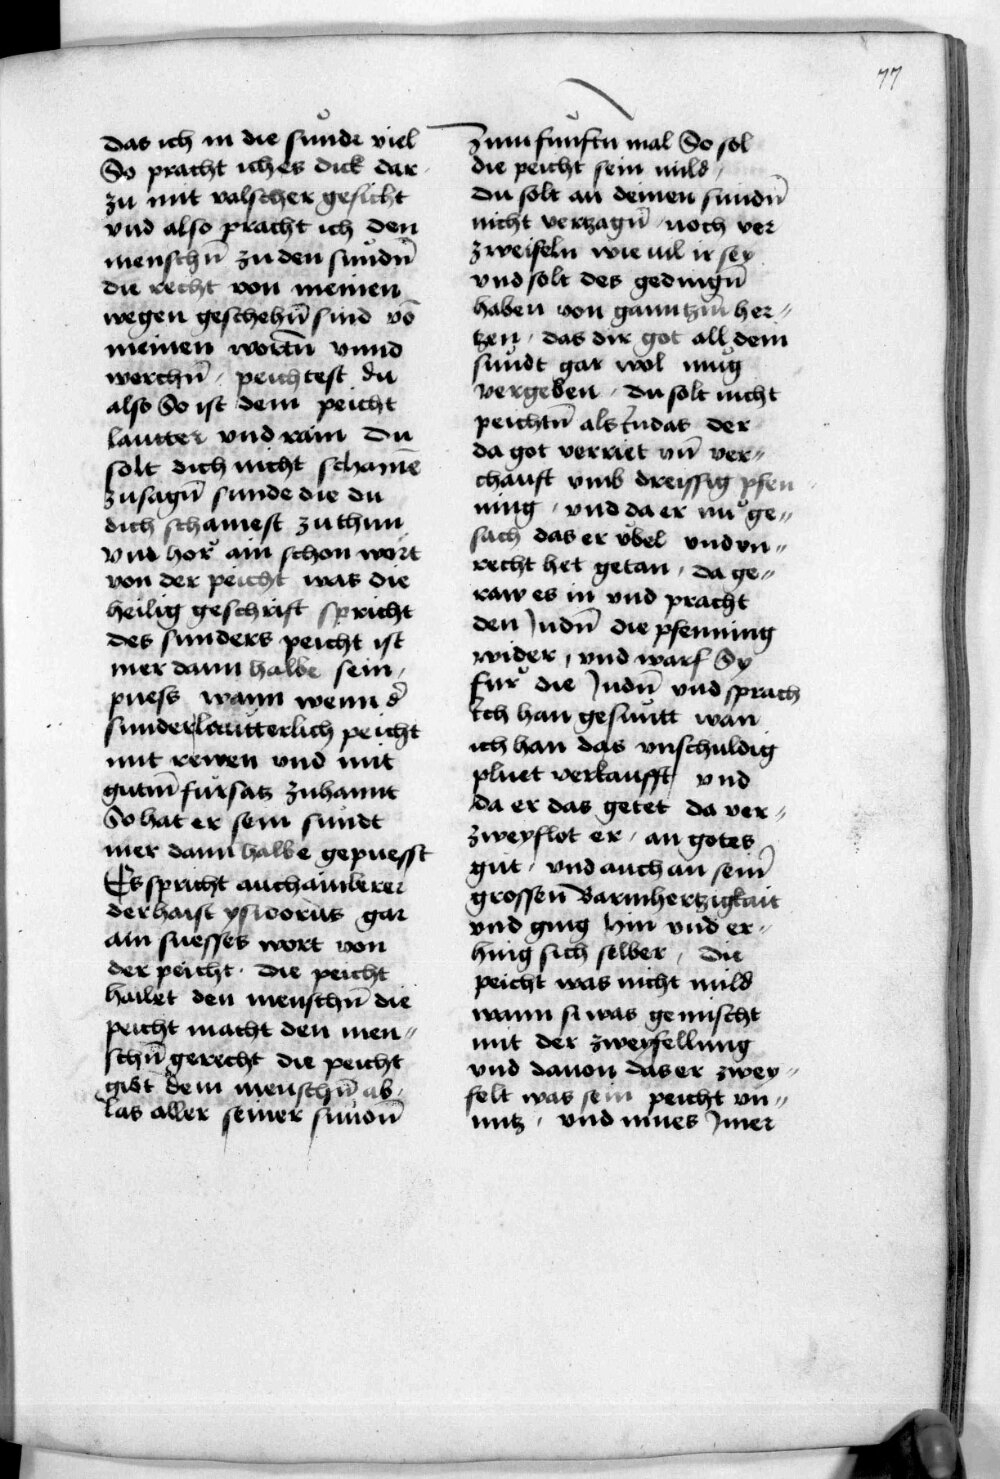 77
das ich in die sůnde viel
So pracht ich es dick dar
zu mit valscher gesicht
vnd also pracht ich den
menschn̄ zu den sůndn̄
die recht von meinen
wegen geschehn̄ sind vō
meinen wortn̄ vnnd
werchn̄ / peichtest du
also So ist dein peicht
lautter vnd rain Du
solt dich nicht schamē
zu sagn̄ sunde die du
dich schamest zu thun
vnd hoͤr ain schon wort
von der peicht was die
heilig geschrift spricht
des sunders peicht ist
mer dann halbe sein
puess wann wenn d̄
sunder lautterlich peicht
mit rewen vnd mit
gutm̄ fůrsatz zuhannt
So hat er sein sůndt
mer dann halbe gepuesst
Es spricht auch ain lerer
der haist ysidorus gar
ain suesses wort von
der peicht · die peicht
hailet den menschn̄ die
peicht macht den men〃
schn̄ gerecht die peicht
gibt dem menschn̄ ab
las aller seiner sůndn̄
Zum fůnftn mal So sol
die peicht sein mild /
du solt an deinen sundn̄
nicht verzagn̄ noch ver
zweifeln wie uil ir sey
vnd solt des gedingn̄
haben von ganntzm̄ her〃
tzen / das dir got all dein
sůndt gar wol mug
vergeben / du solt nicht
peichtn̄ als Judas der
da got verriet vn̄ ver〃
chauft vmb dreissig pfen〃
ning / vnd da er nů ge〃
sach das er ůbel vnd vn〃
recht het getan / da ge〃
raw es in vnd pracht
den Judn̄ die pfenning
wider / vnd warf Sy
fůr die Judn̄ vnd sprach
Ich han gesůntt wan
ich han das vnschuldig
pluet verkaufft vnd
da er das getet da ver〃
zweyflot er / an gotes
gut / vnd auch an sein̄
grossen̄ Barmhertzigkait
vnd ging hin vnd er〃
hing sich selber / die
peicht was nicht mild
wann si was gemischt
mit der zweyfellung
vnd dauon das er zwey〃
felt was sein peicht vn〃
nutz / vnd mues Jmer